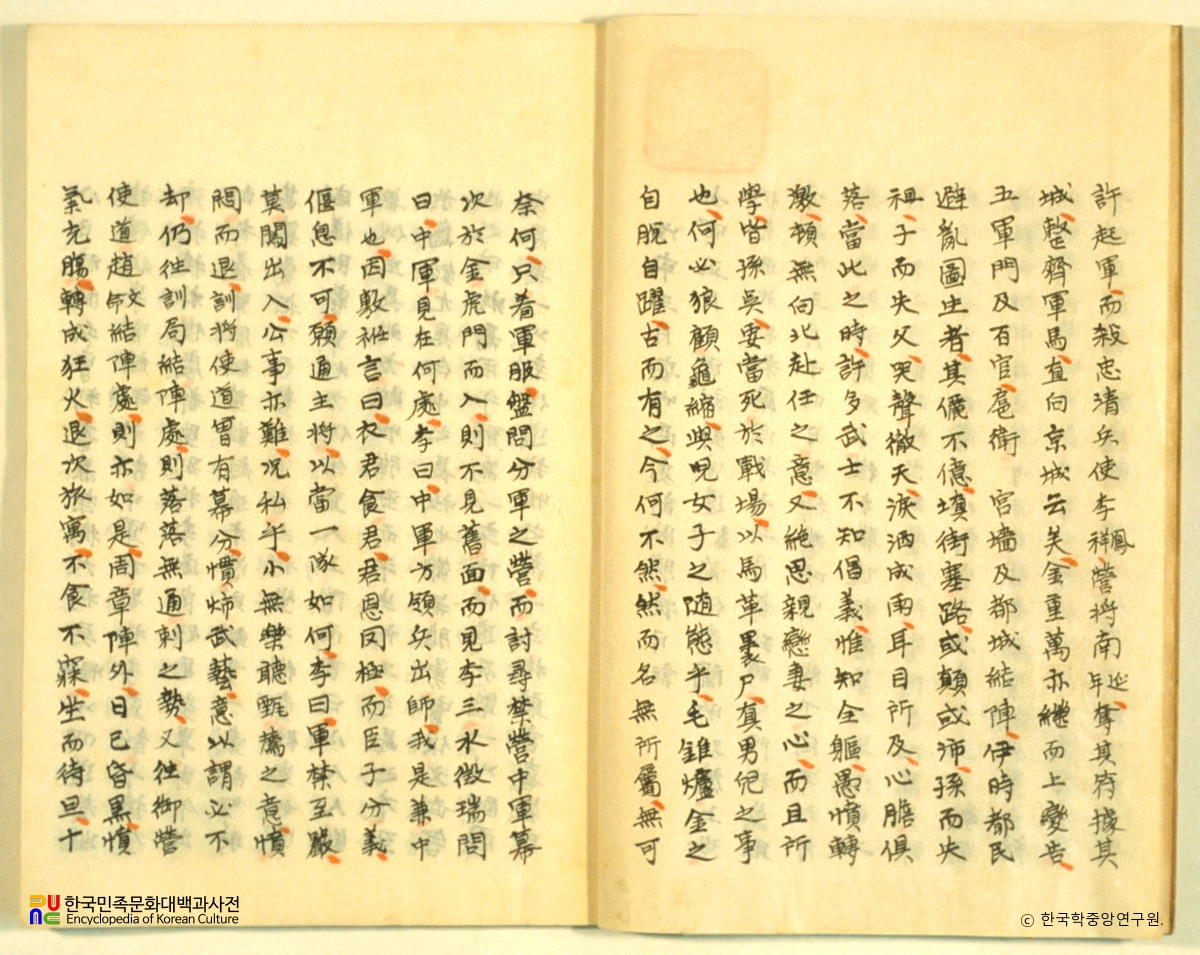 許起軍而殺忠清兵使李鳳祥營將南延年奪其府據其
城整齊軍馬直向京城云矣金重萬亦繼而上變告
五軍門及百官扈衛 宮墻及都城結陣伊時都民
避亂圖生者其儷不億塡街塞路或顚或沛孫而失
祖子而失父哭聲徹天淚洒成雨耳目所及心膽俱
落當此之時許多武士不知倡義惟知全軀愚憤轉
激頓無向北赴任之意又絶思親戀妻之心而且所
學皆孫吳要當死於戰場以馬革裹尸眞男兒之事
也何必狼顧龜縮與兒女子之随態乎毛錐爐金之
自脫自躍古而有之今何不然然而名無所屬無可
奈何只着軍服盤問分軍之營而討尋禁營中軍幕
次於金虎門而入則不見舊面而見李三水徵瑞問
曰中軍見在何處李曰中軍方領兵出師我是兼中
軍也因敷袵言曰衣君食君君恩罔極而臣子分義
偃息不可願通主將以當一隊如何李曰軍禁至嚴
莫關出入公事亦難况私乎小無樂聽甄薦之意憤
悶而退訓將使道曾有幕分慣煉武藝意以謂必不
却仍徃訓局結陣處則落落無通刺之勢又徃御營
使道趙文命結陣處則亦如是周章陣外日已昏黑憤
氣充膓轉成狂火退次旅寓不食不寐坐而待旦十
한국민족문화대백과사전
Encyclopedia of Korean Culture
ⓒ 한국학중앙연구원.